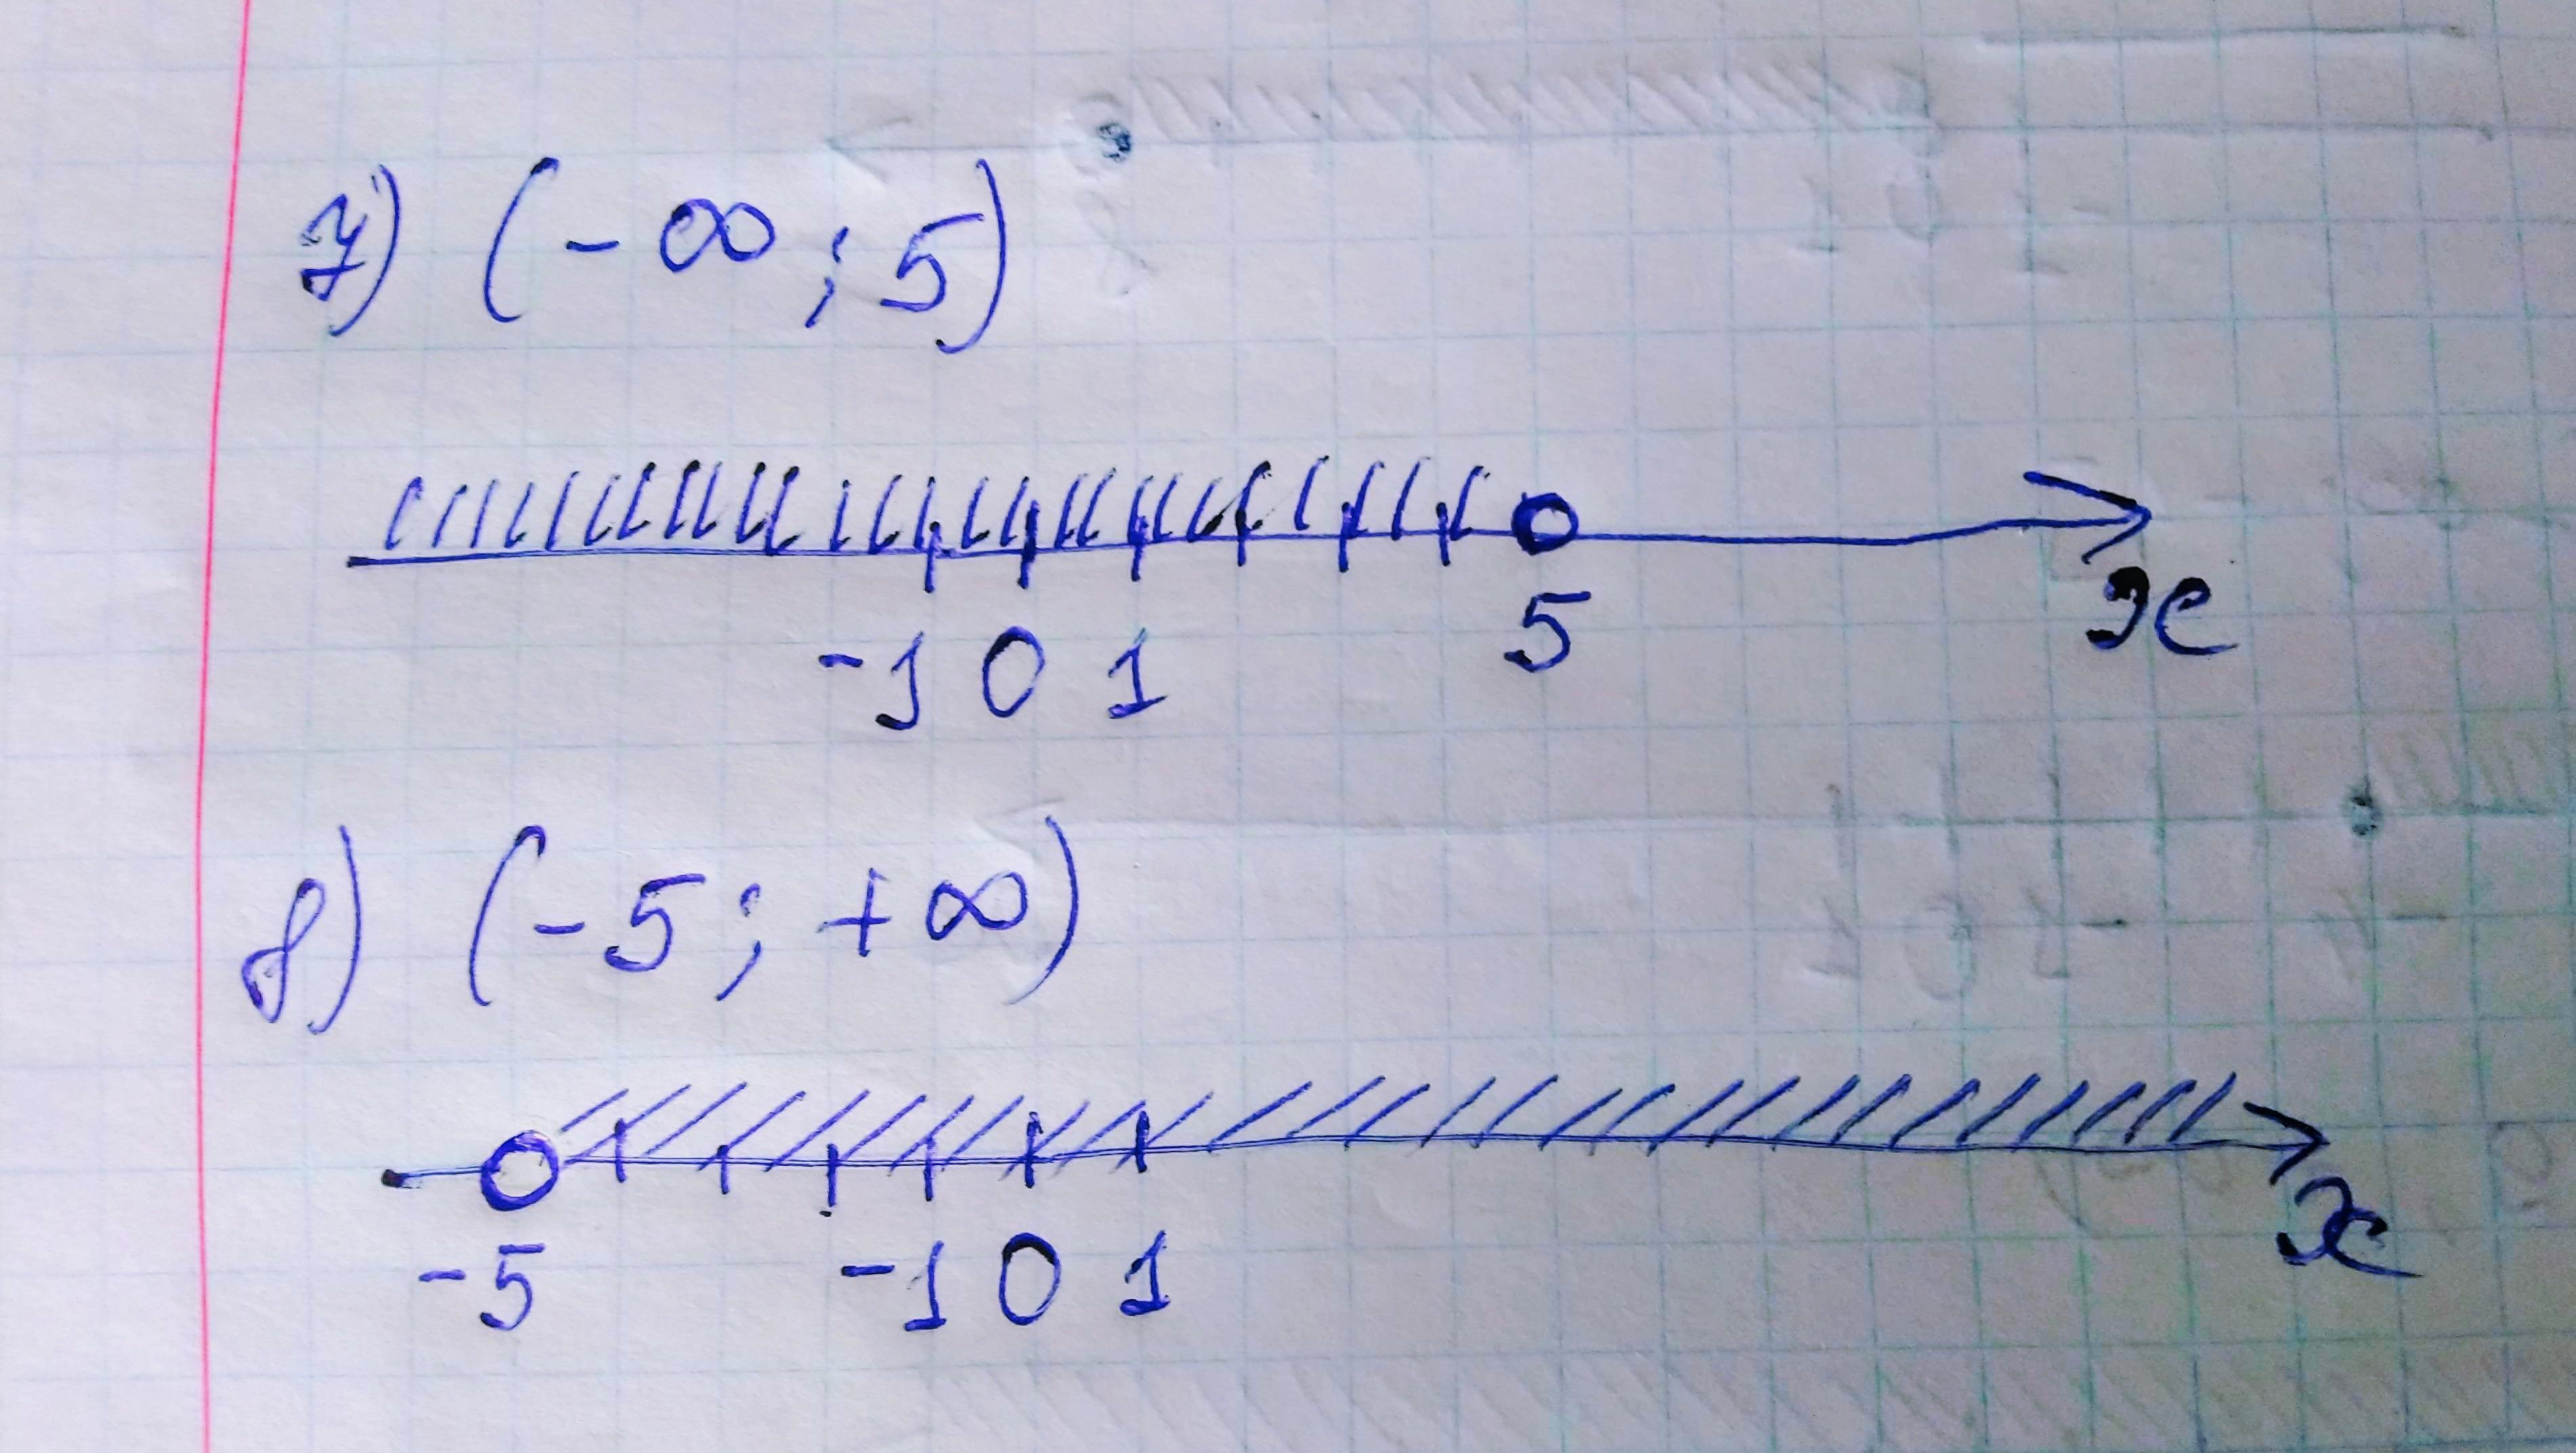 7) (-∞; 5)
-1 0 1 5 x
8) (-5; +∞)
-5 -1 0 1 x